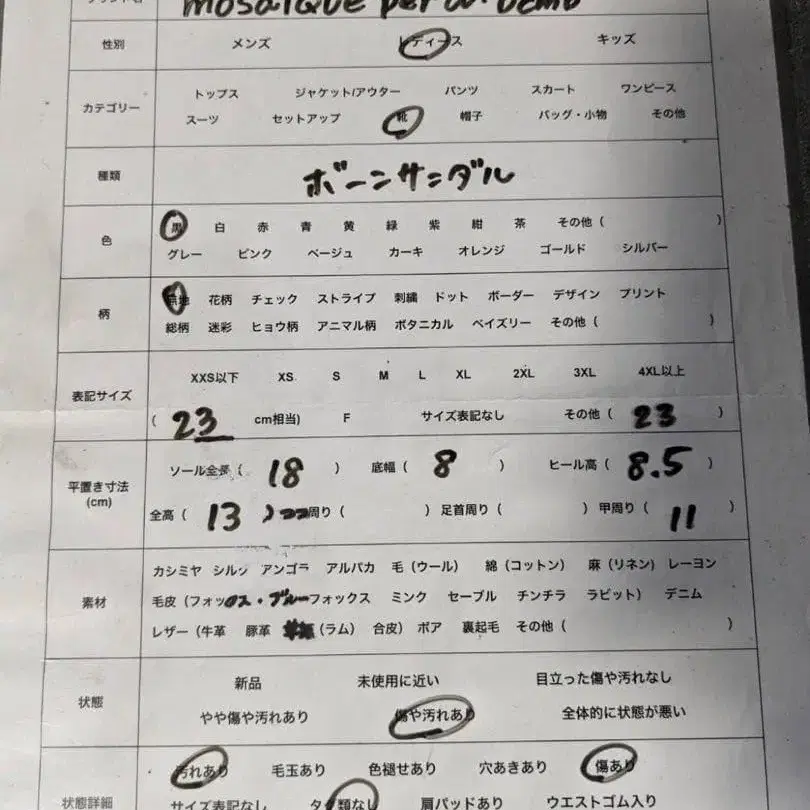 mosaique per di Demo
性別 メンズ レディース キッズ
トップス ジャケット/アウター パンツ スカート ワンピース
カテゴリー
スーツ セットアップ 靴 帽子 バッグ・小物 その他
種類 ボーンサンダル
黒 白 赤 青 黄 緑 紫 紺 茶 その他 ( )
色
グレー ピンク ベージュ カーキ オレンジ ゴールド シルバー
無地 花柄 チェック ストライプ 刺繍 ドット ボーダー デザイン プリント
柄
総柄 迷彩 ヒョウ柄 アニマル柄 ボタニカル ペイズリー その他 ( )
XXS以下 XS S M L XL 2XL 3XL 4XL以上
表記サイズ
( 23 cm相当) F サイズ表記なし その他 ( 23 )
ソール全長 ( 18 ) 底幅 ( 8 ) ヒール高 ( 8.5 )
平置き寸法
(cm)
全高 ( 13 ) 周り ( ) 足首周り ( ) 甲周り ( 11 )
カシミヤ シルク アンゴラ アルパカ 毛 (ウール) 綿 (コットン) 麻 (リネン) レーヨン
素材
毛皮 (フォックス・ブルーフォックス ミンク セーブル チンチラ ラビット) デニム
レザー (牛革 豚革 (ラム) 合皮) ボア 裏起毛 その他 ( )
新品 未使用に近い 目立った傷や汚れなし
状態
やや傷や汚れあり 傷や汚れあり 全体的に状態が悪い
汚れあり 毛玉あり 色褪せあり 穴あきあり 傷あり
状態詳細
サイズ表記なし タグ類なし 肩パッドあり ウエストゴム入り